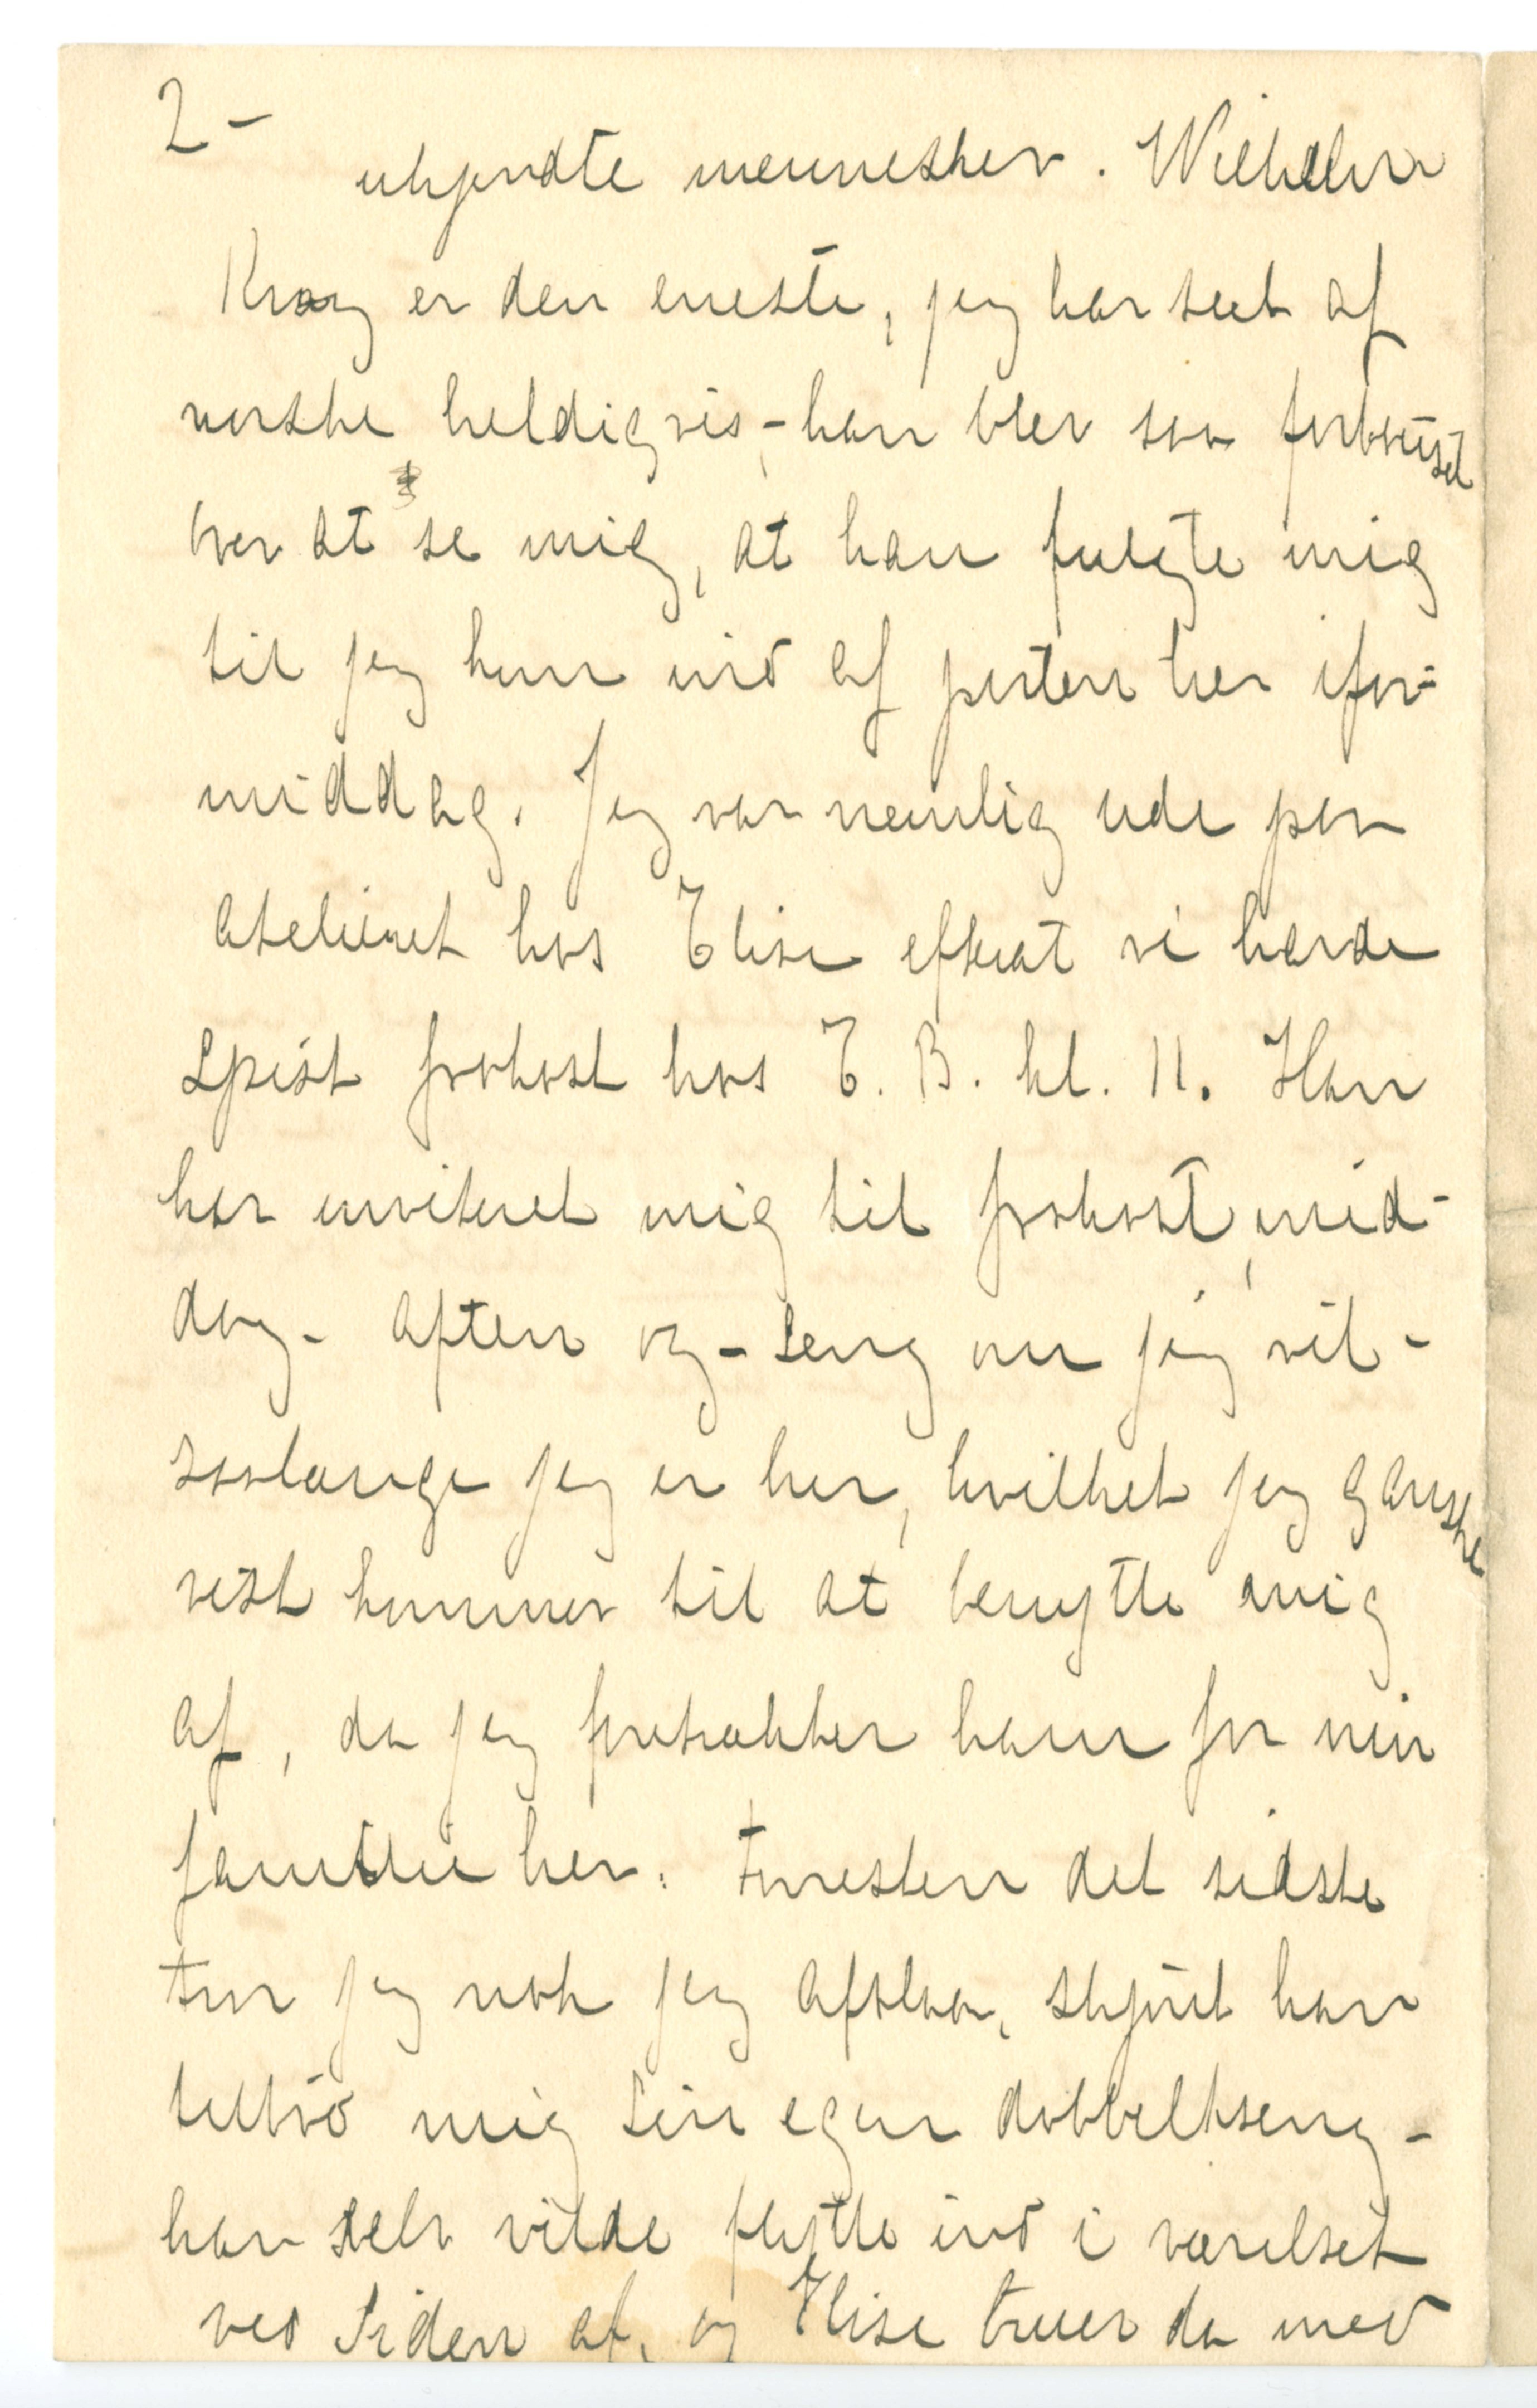 2-
ukjendte mennesker. Wilhelm
Krag er den eneste, jeg har seet af
norske heldigvis - han blev saa forbauset
over at se mig, at han fulgte mig
til jeg kom ind af porten her ifor-
middag. Jeg var nemlig ude paa
atelieret hos Elise efterat vi havde
spist frokost hos E. B. kl. 11. Han
har inviteret mig til frokost, mid-
dag - aften og - seng om jeg vil -
saalænge jeg er her, hvilket jeg ganske
vist kommer til at benytte mig
af, da jeg foretrækker ham for min
familie her. Forresten det sidste
tror jeg nok jeg afslaar, skjønt han
tilbød mig sin egen dobbeltseng -
han selv vilde flytte ind i værelset
ved siden af, og Elise truer da med